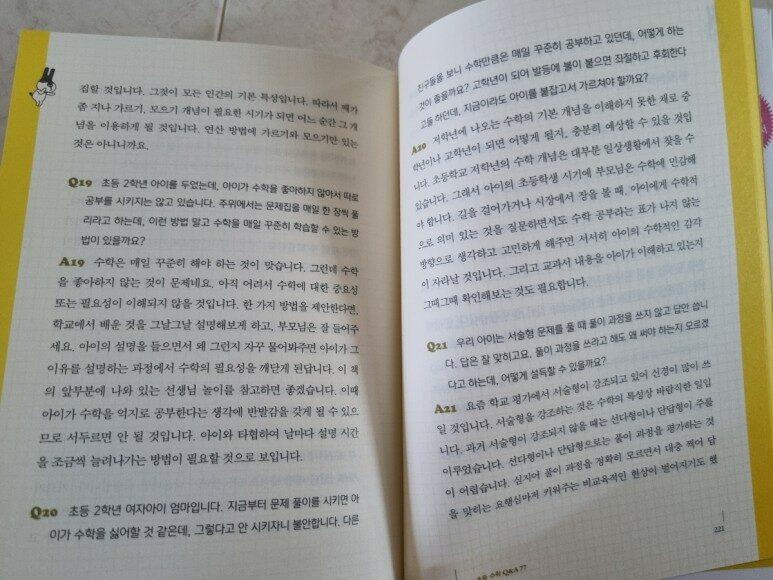 집할 것입니다. 그것이 모든 인간의 기본 특성입니다. 따라서 때가
좀 지나 가르기, 모으기 개념이 필요한 시기가 되면 어느 순간 그 개
념을 이용하게 될 것입니다. 연산 방법에 가르기와 모으기만 있는
것은 아니니까요.
Q19 초등 2학년 아이를 두었는데, 아이가 수학을 좋아하지 않아서 따로
공부를 시키지는 않고 있습니다. 주위에서는 문제집을 매일 한 장씩 풀
리라고 하는데, 이런 방법 말고 수학을 매일 꾸준히 학습할 수 있는 방
법이 있을까요?
A19 수학은 매일 꾸준히 해야 하는 것이 맞습니다. 그런데 수학
을 좋아하지 않는 것이 문제네요. 아직 어려서 수학에 대한 중요성
또는 필요성이 이해되지 않을 것입니다. 한 가지 방법을 제안한다면,
학교에서 배운 것을 그날그날 설명해보게 하고, 부모님은 잘 들어주
세요. 아이의 설명을 들으면서 왜 그런지 자꾸 물어봐주면 아이가 그
이유를 설명하는 과정에서 수학의 필요성을 깨닫게 된답니다. 이 책
의 앞부분에 나와 있는 선생님 놀이를 참고하면 좋겠습니다. 이때
아이가 수학을 억지로 공부한다는 생각에 반발감을 갖게 될 수 있으
므로 서두르면 안 될 것입니다. 아이와 타협하여 날마다 설명 시간
을 조금씩 늘려나가는 방법이 필요할 것으로 보입니다.
Q20 초등 2학년 여자아이 엄마입니다. 지금부터 문제 풀이를 시키면 아
이가 수학을 싫어할 것 같은데, 그렇다고 안 시키자니 불안합니다. 다른
친구들을 보니 수학만큼은 매일 꾸준히 공부하고 있던데, 어떻게 하는
것이 좋을까요? 고학년이 되어 발등에 불이 붙으면 좌절하고 후회한다
고들 하던데, 지금이라도 아이를 붙잡고서 가르쳐야 할까요?
A20 저학년에 나오는 수학의 기본 개념을 이해하지 못한 채로 중
학년이나 고학년이 되면 어떻게 될지, 충분히 예상할 수 있을 것입
니다. 초등학교 저학년의 수학 개념은 대부분 일상생활에서 찾을 수
있습니다. 그래서 아이의 초등학생 시기에 부모님은 수학에 민감해
야 합니다. 길을 걸어가거나 시장에서 장을 볼 때, 아이에게 수학적
으로 의미 있는 것을 질문하면서도 수학 공부라는 표가 나지 않는
방향으로 생각하고 고민하게 해주면 서서히 아이의 수학적인 감각
이 자라날 것입니다. 그리고 교과서 내용을 아이가 이해하고 있는지
그때그때 확인해보는 것도 필요합니다.
Q21 우리 아이는 서술형 문제를 풀 때 풀이 과정을 쓰지 않고 답만 씁니
다. 답은 잘 맞히고요. 풀이 과정을 쓰라고 해도 왜 써야 하는지 모르겠
다고 하는데, 어떻게 설득할 수 있을까요?
A21 요즘 학교 평가에서 서술형이 강조되고 있어 신경이 많이 쓰
일 것입니다. 서술형을 강조하는 것은 수학의 특성상 바람직한 일입
니다. 과거 서술형이 강조되지 않을 때는 선다형이나 단답형이 주를
이루었습니다. 선다형이나 단답형으로는 풀이 과정을 평가하는 것
이 어렵습니다. 심지어 풀이 과정을 정확히 모르면서 대충 찍어 답
을 맞히는 요행심마저 키워주는 비교육적인 현상이 벌어지기도 했
수학 Q&A 77
221